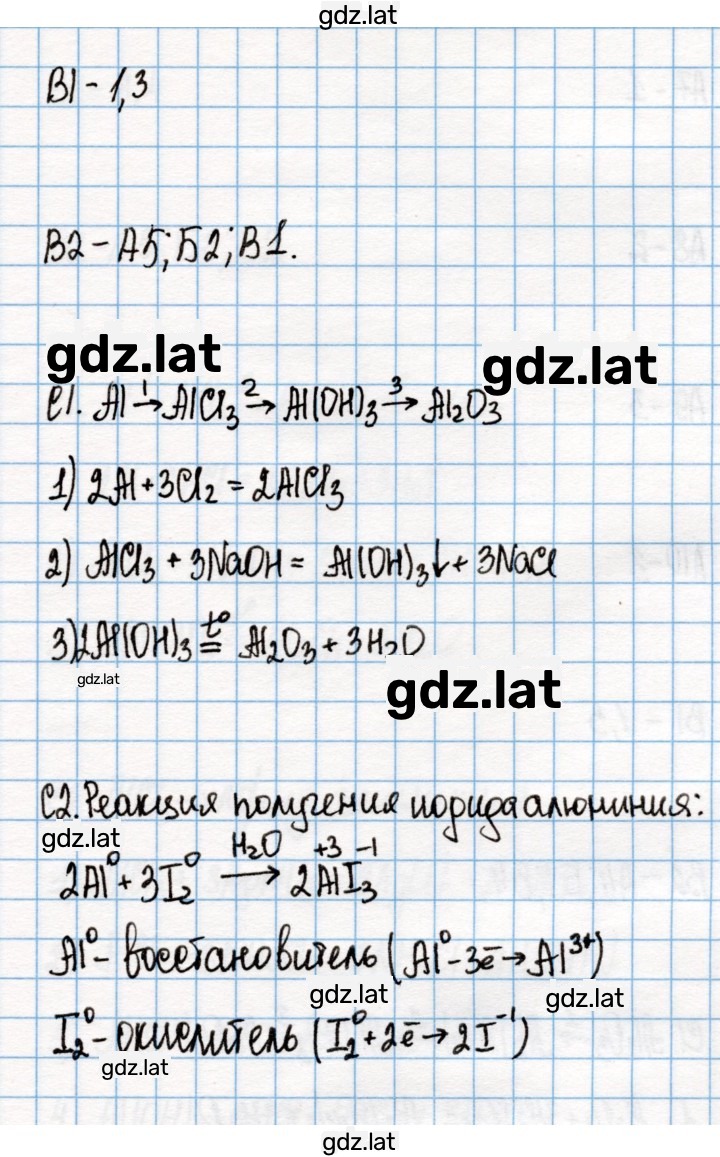 gdz.lat
В1 - 1,3
В2 - А5; Б2; В1.
gdz.lat
gdz.lat
С1. Al →¹ AlCl₃ →² Al(OH)₃ →³ Al₂O₃
1) 2Al + 3Cl₂ = 2AlCl₃
2) AlCl₃ + 3NaOH = Al(OH)₃↓ + 3NaCl
3) 2Al(OH)₃ =ᵗ° Al₂O₃ + 3H₂O
gdz.lat
gdz.lat
С2. Реакция получения иодида алюминия:
gdz.lat
H₂O +3 -1
2Al⁰ + 3I₂⁰ → 2AlI₃
Al⁰ - восстановитель (Al⁰ - 3ē → Al³⁺)
gdz.lat
gdz.lat
I₂⁰ - окислитель (I₂⁰ + 2ē → 2I⁻¹)
gdz.lat
gdz.lat